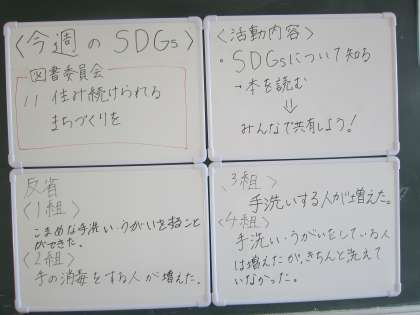 〈今週のSDGs〉
図書委員会
11 住み続けられる
まちづくりを
〈活動内容〉
・SDGsについて知る
→本を読む
⇓
みんなで共有しよう!
反省
〈1組〉
こまめな手洗い・うがいをすること
ができた。
〈2組〉
手の消毒をする人が増えた。
〈3組〉
手洗いする人が増えた。
〈4組〉
手洗い・うがいをしている人
は増えたが、きちんと洗えて
いなかった。